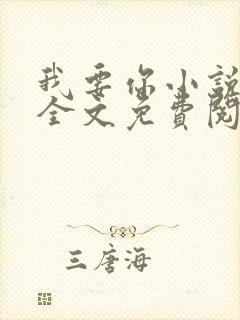 我要你小説
全文免費閱
三唐海